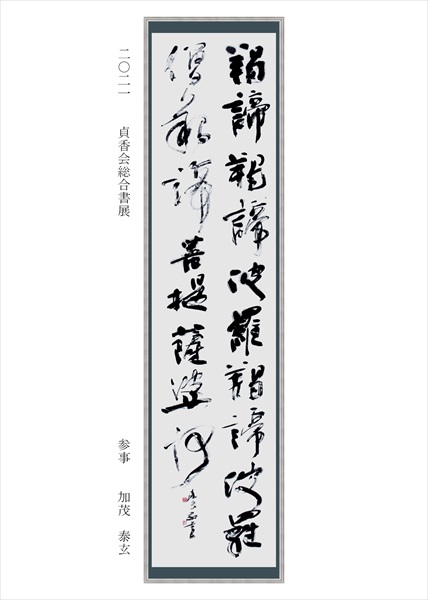 羯諦羯諦波羅羯諦波羅
僧羯諦菩提薩婆訶
二〇二一 貞香会総合書展 参事 加茂 泰玄